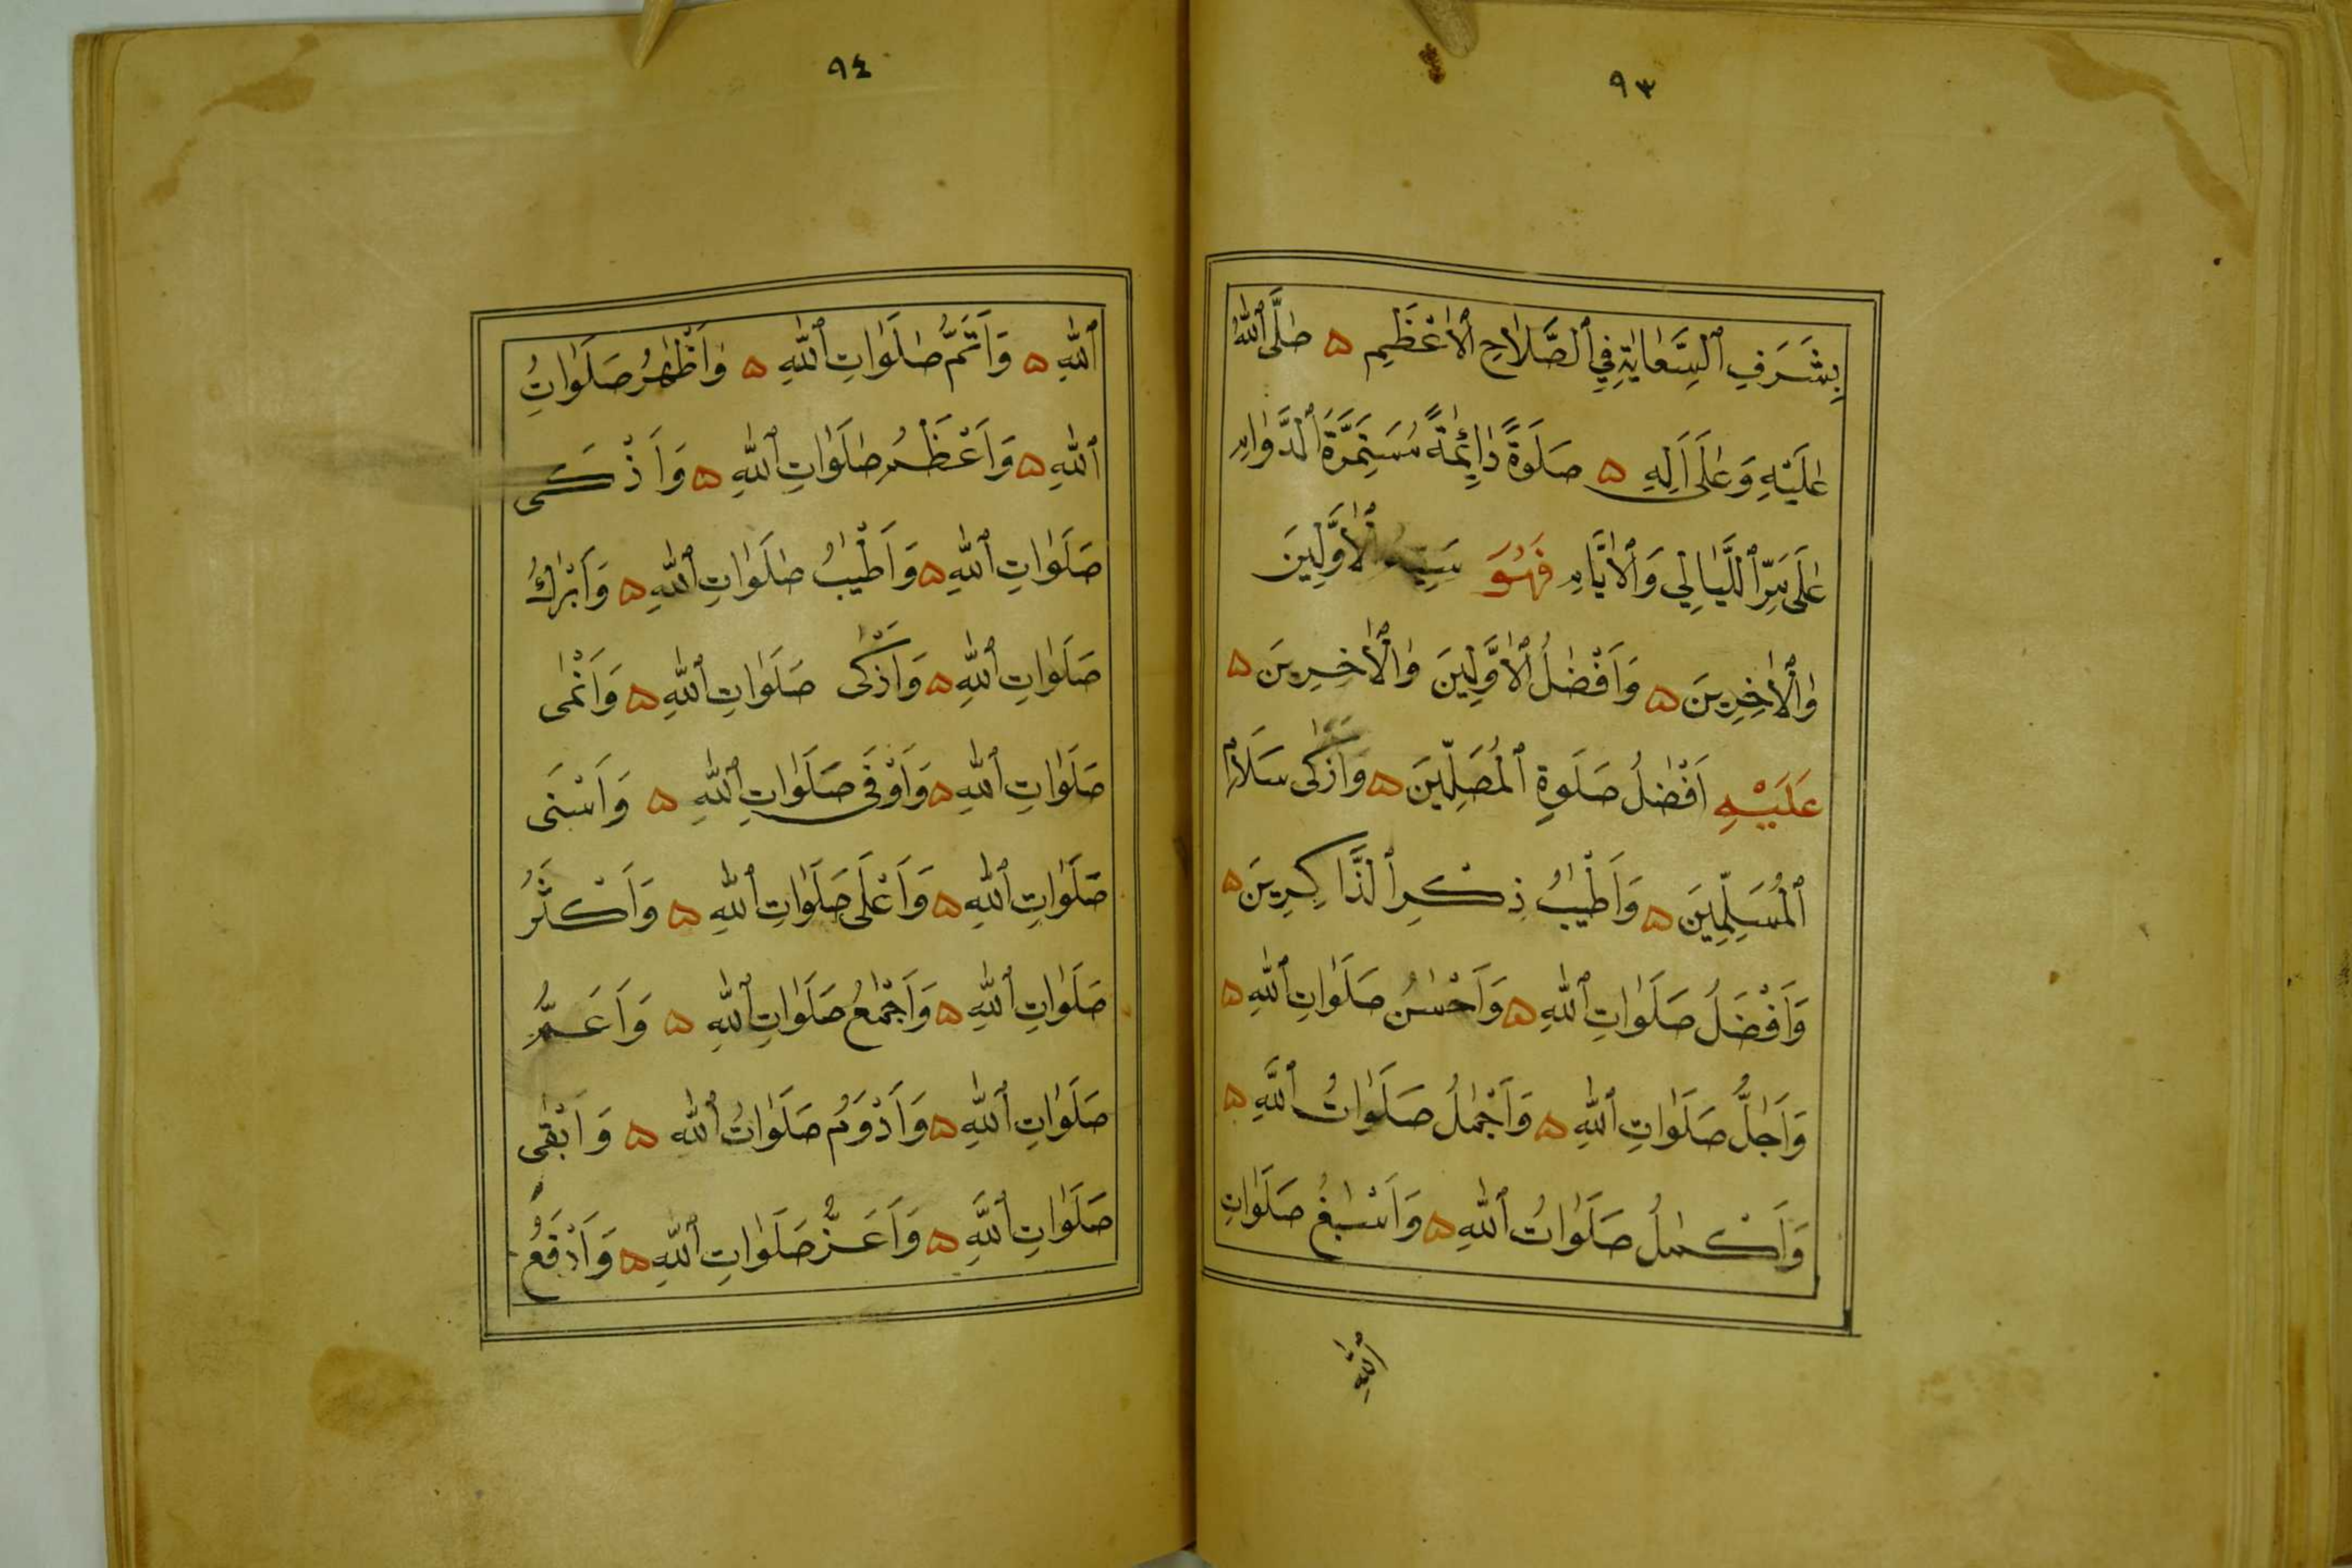 ٩٣
بِشَرَفِ ٱلسِّعَايَةِ فِي ٱلصَّلَاحِ ٱلْأَعْظَمِ ۵ صَلَّى ٱللّٰهُ
عَلَيْهِ وَعَلَى آلِهِ ۵ صَلَوةً دَائِمَةً مُسْتَمِرَّةَ ٱلدَّوَامِ
عَلَى مَرِّ ٱللَّيَالِي وَٱلْأَيَّامِ فَهُوَ سَيِّدُ ٱلْأَوَّلِينَ
وَٱلْأَخِرِينَ ۵ وَأَفْضَلُ ٱلْأَوَّلِينَ وَٱلْأَخِرِينَ ۵
عَلَيْهِ أَفْضَلُ صَلَوةِ ٱلْمُصَلِّينَ ۵ وَأَزْكَى سَلَامِ
ٱلْمُسَلِّمِينَ ۵ وَأَطْيَبُ ذِكْرِ ٱلذَّاكِرِينَ ۵
وَأَفْضَلُ صَلَوَاتِ ٱللّٰهِ ۵ وَأَحْسَنُ صَلَوَاتِ ٱللّٰهِ ۵
وَأَجَلُّ صَلَوَاتِ ٱللّٰهِ ۵ وَأَجْمَلُ صَلَوَاتُ ٱللّٰهِ ۵
وَأَكْمَلُ صَلَوَاتُ ٱللّٰهِ ۵ وَأَسْبَغُ صَلَوَاتِ
ٱللّٰهِ
٩٤
ٱللّٰهِ ۵ وَأَتَمُّ صَلَوَاتِ ٱللّٰهِ ۵ وَأَظْهَرُ صَلَوَاتُِ
ٱللّٰهِ ۵ وَأَعْظَمُ صَلَوَاتِ ٱللّٰهِ ۵ وَأَذْكَى
صَلَوَاتِ ٱللّٰهِ ۵ وَأَطْيَبُ صَلَوَاتِ ٱللّٰهِ ۵ وَأَبْرَكُ
صَلَوَاتِ ٱللّٰهِ ۵ وَأَزْكَى صَلَوَاتِ ٱللّٰهِ ۵ وَأَنْمَى
صَلَوَاتِ ٱللّٰهِ ۵ وَأَوْفَى صَلَوَاتِ ٱللّٰهِ ۵ وَأَسْنَى
صَلَوَاتِ ٱللّٰهِ ۵ وَأَعْلَى صَلَوَاتِ ٱللّٰهِ ۵ وَأَكْثَرُ
صَلَوَاتِ ٱللّٰهِ ۵ وَأَجْمَعُ صَلَوَاتِ ٱللّٰهِ ۵ وَأَعَمُّ
صَلَوَاتِ ٱللّٰهِ ۵ وَأَدْوَمُ صَلَوَاتُ ٱللّٰهِ ۵ وَأَبْقَى
صَلَوَاتِ ٱللّٰهِ ۵ وَأَعَزُّ صَلَوَاتِ ٱللّٰهِ ۵ وَأَرْفَعُ